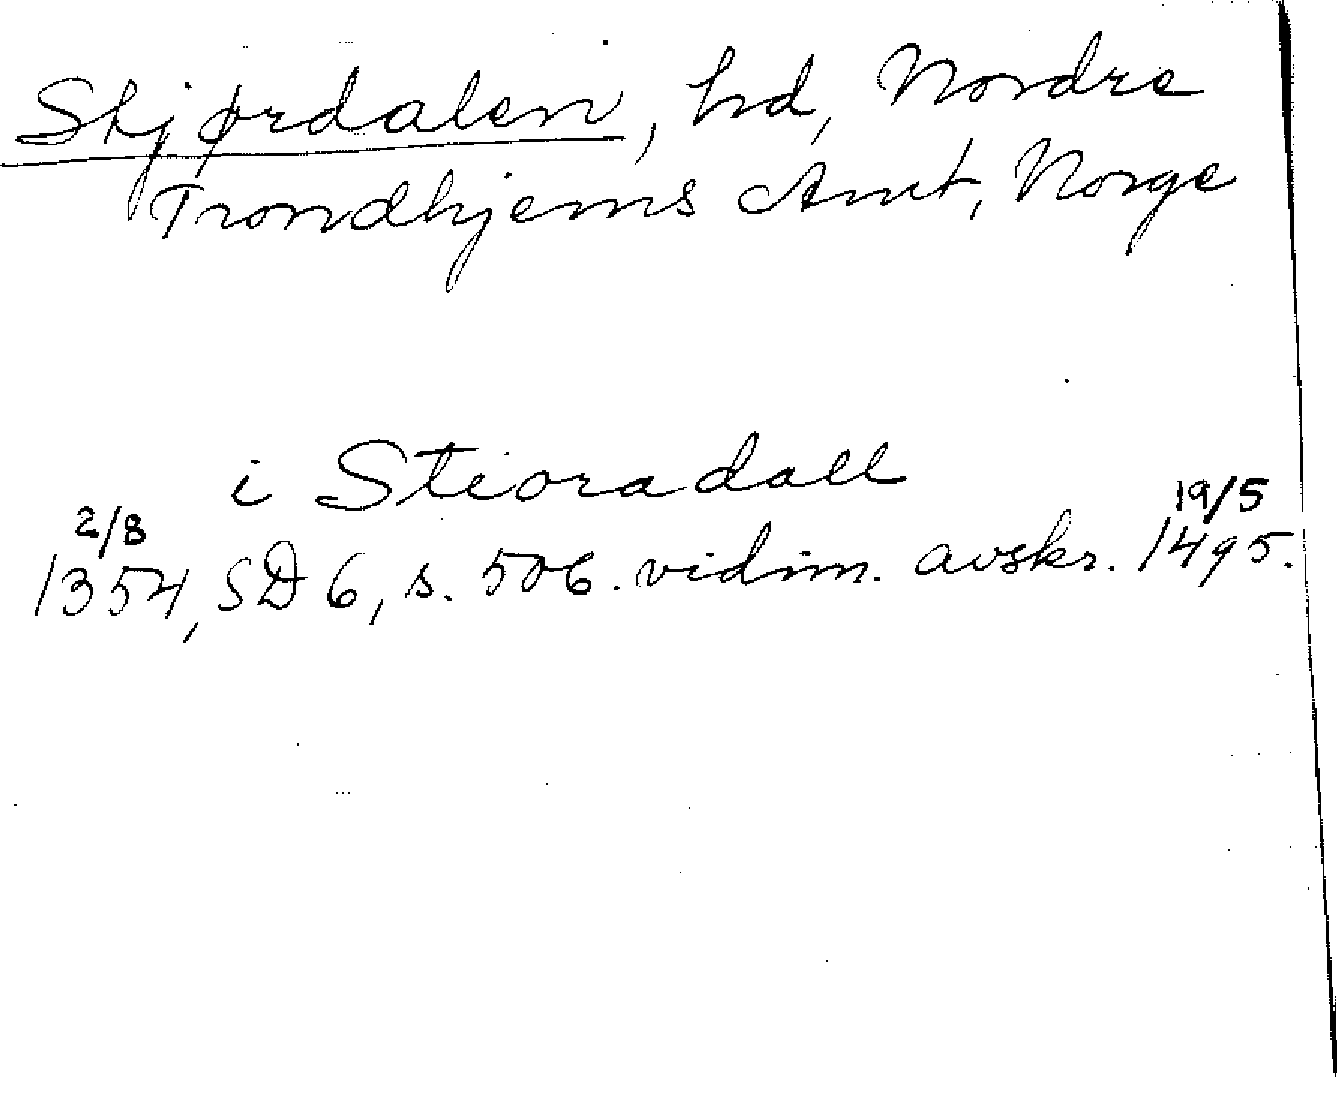 Skjørdalen, hd, Nordre
Trondhjems Amt, Norge
i Stioradall
2/8 19/5
1354, SD 6, s. 506. vidim. avskr. 1495.